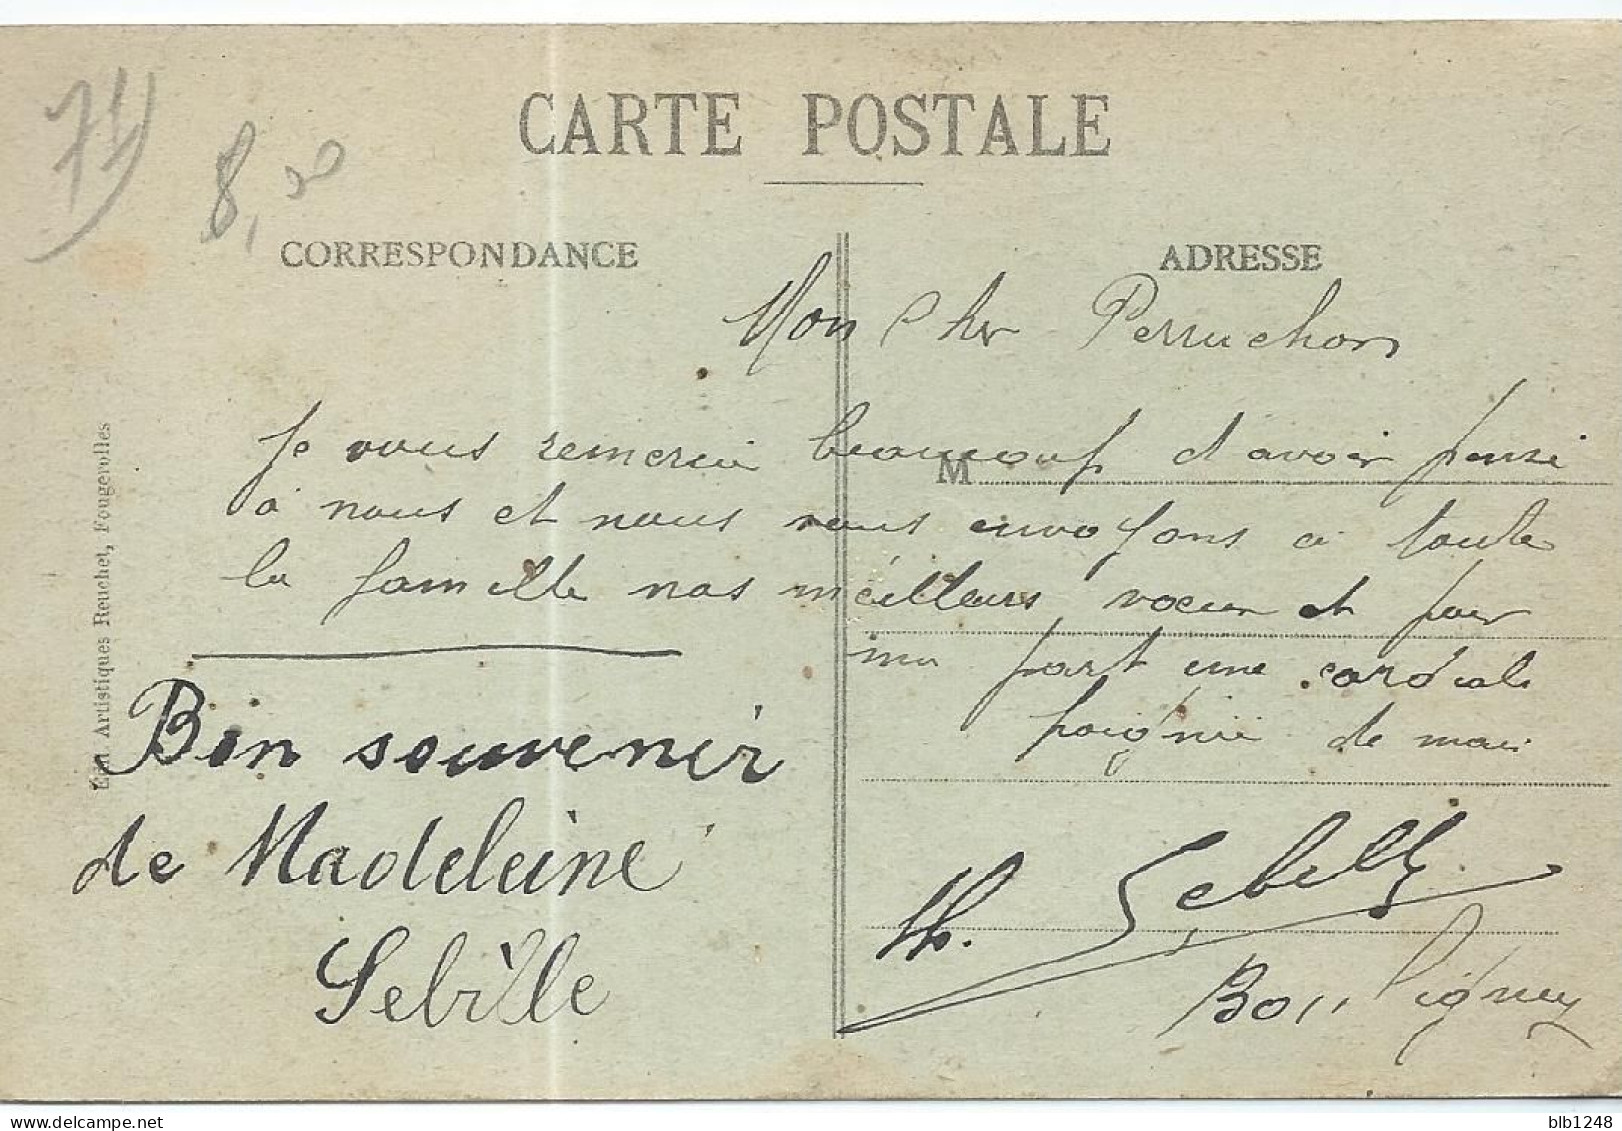 CARTE POSTALE
8,00
CORRESPONDANCE
ADRESSE
Mon Cher Perruchon
Je vous remercie beaucoup d'avoir pensé
M
à nous et nous vous envoyons à toute
la famille nos meilleurs voeux et pour
ma part une cordiale
poignée de main
Bon souvenir
de Madeleine
Sebille
th. Sebille
Edit. Artistiques Reuchet, Fougerolles
blb1248